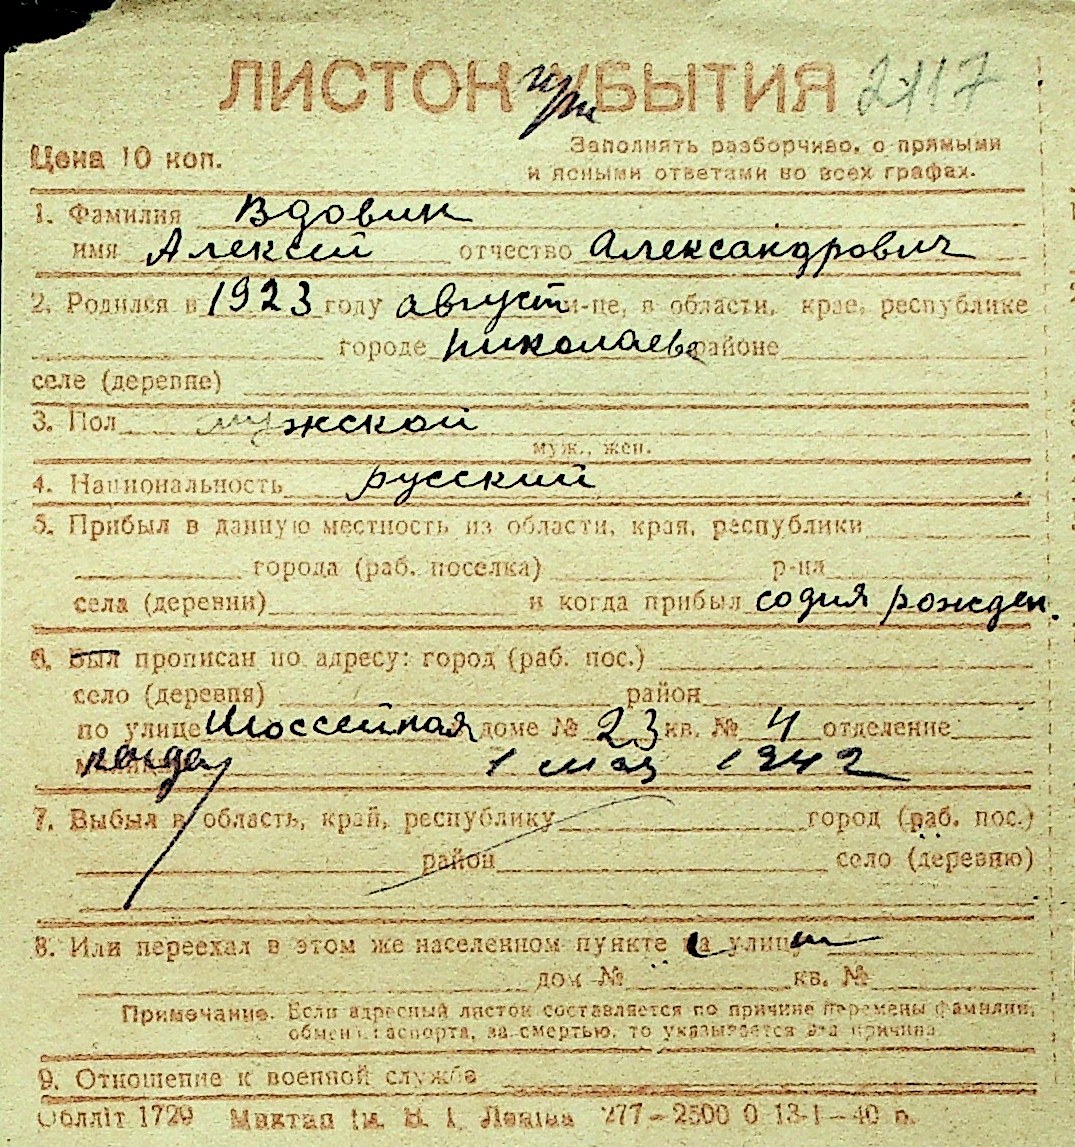 ЛИСТОК при УБЫТИЯ 2117
Цена 10 коп.
Заполнять разборчиво, с прямыми
и ясными ответами во всех графах.
1. Фамилия Вдовин
имя Алексей отчество Александрович
2. Родился в 1923 году август м-це, в области, крае, республике
городе Николаеве районе
селе (деревне)
3. Пол мужской
муж., жен.
4. Национальность русский
5. Прибыл в данную местность из области, края, республики
города (раб. поселка) р-на
села (деревни) и когда прибыл содня рожден.
6. Был прописан по адресу: город (раб. пос.)
село (деревня) район
по улице Шоссейная доме № 23 кв. № 4 отделение
когда 1 мая 1942
7. Выбыл в область, край, республику город (раб. пос.)
район село (деревню)
8. Или переехал в этом же населенном пункте на улицу
дом № кв. №
Примечание. Если адресный листок составляется по причине перемены фамилии,
обмена паспорта, за смертью, то указывается эта причина
9. Отношение к военной службе
Облліт 1729 277–2500 0 13-I–40 р.